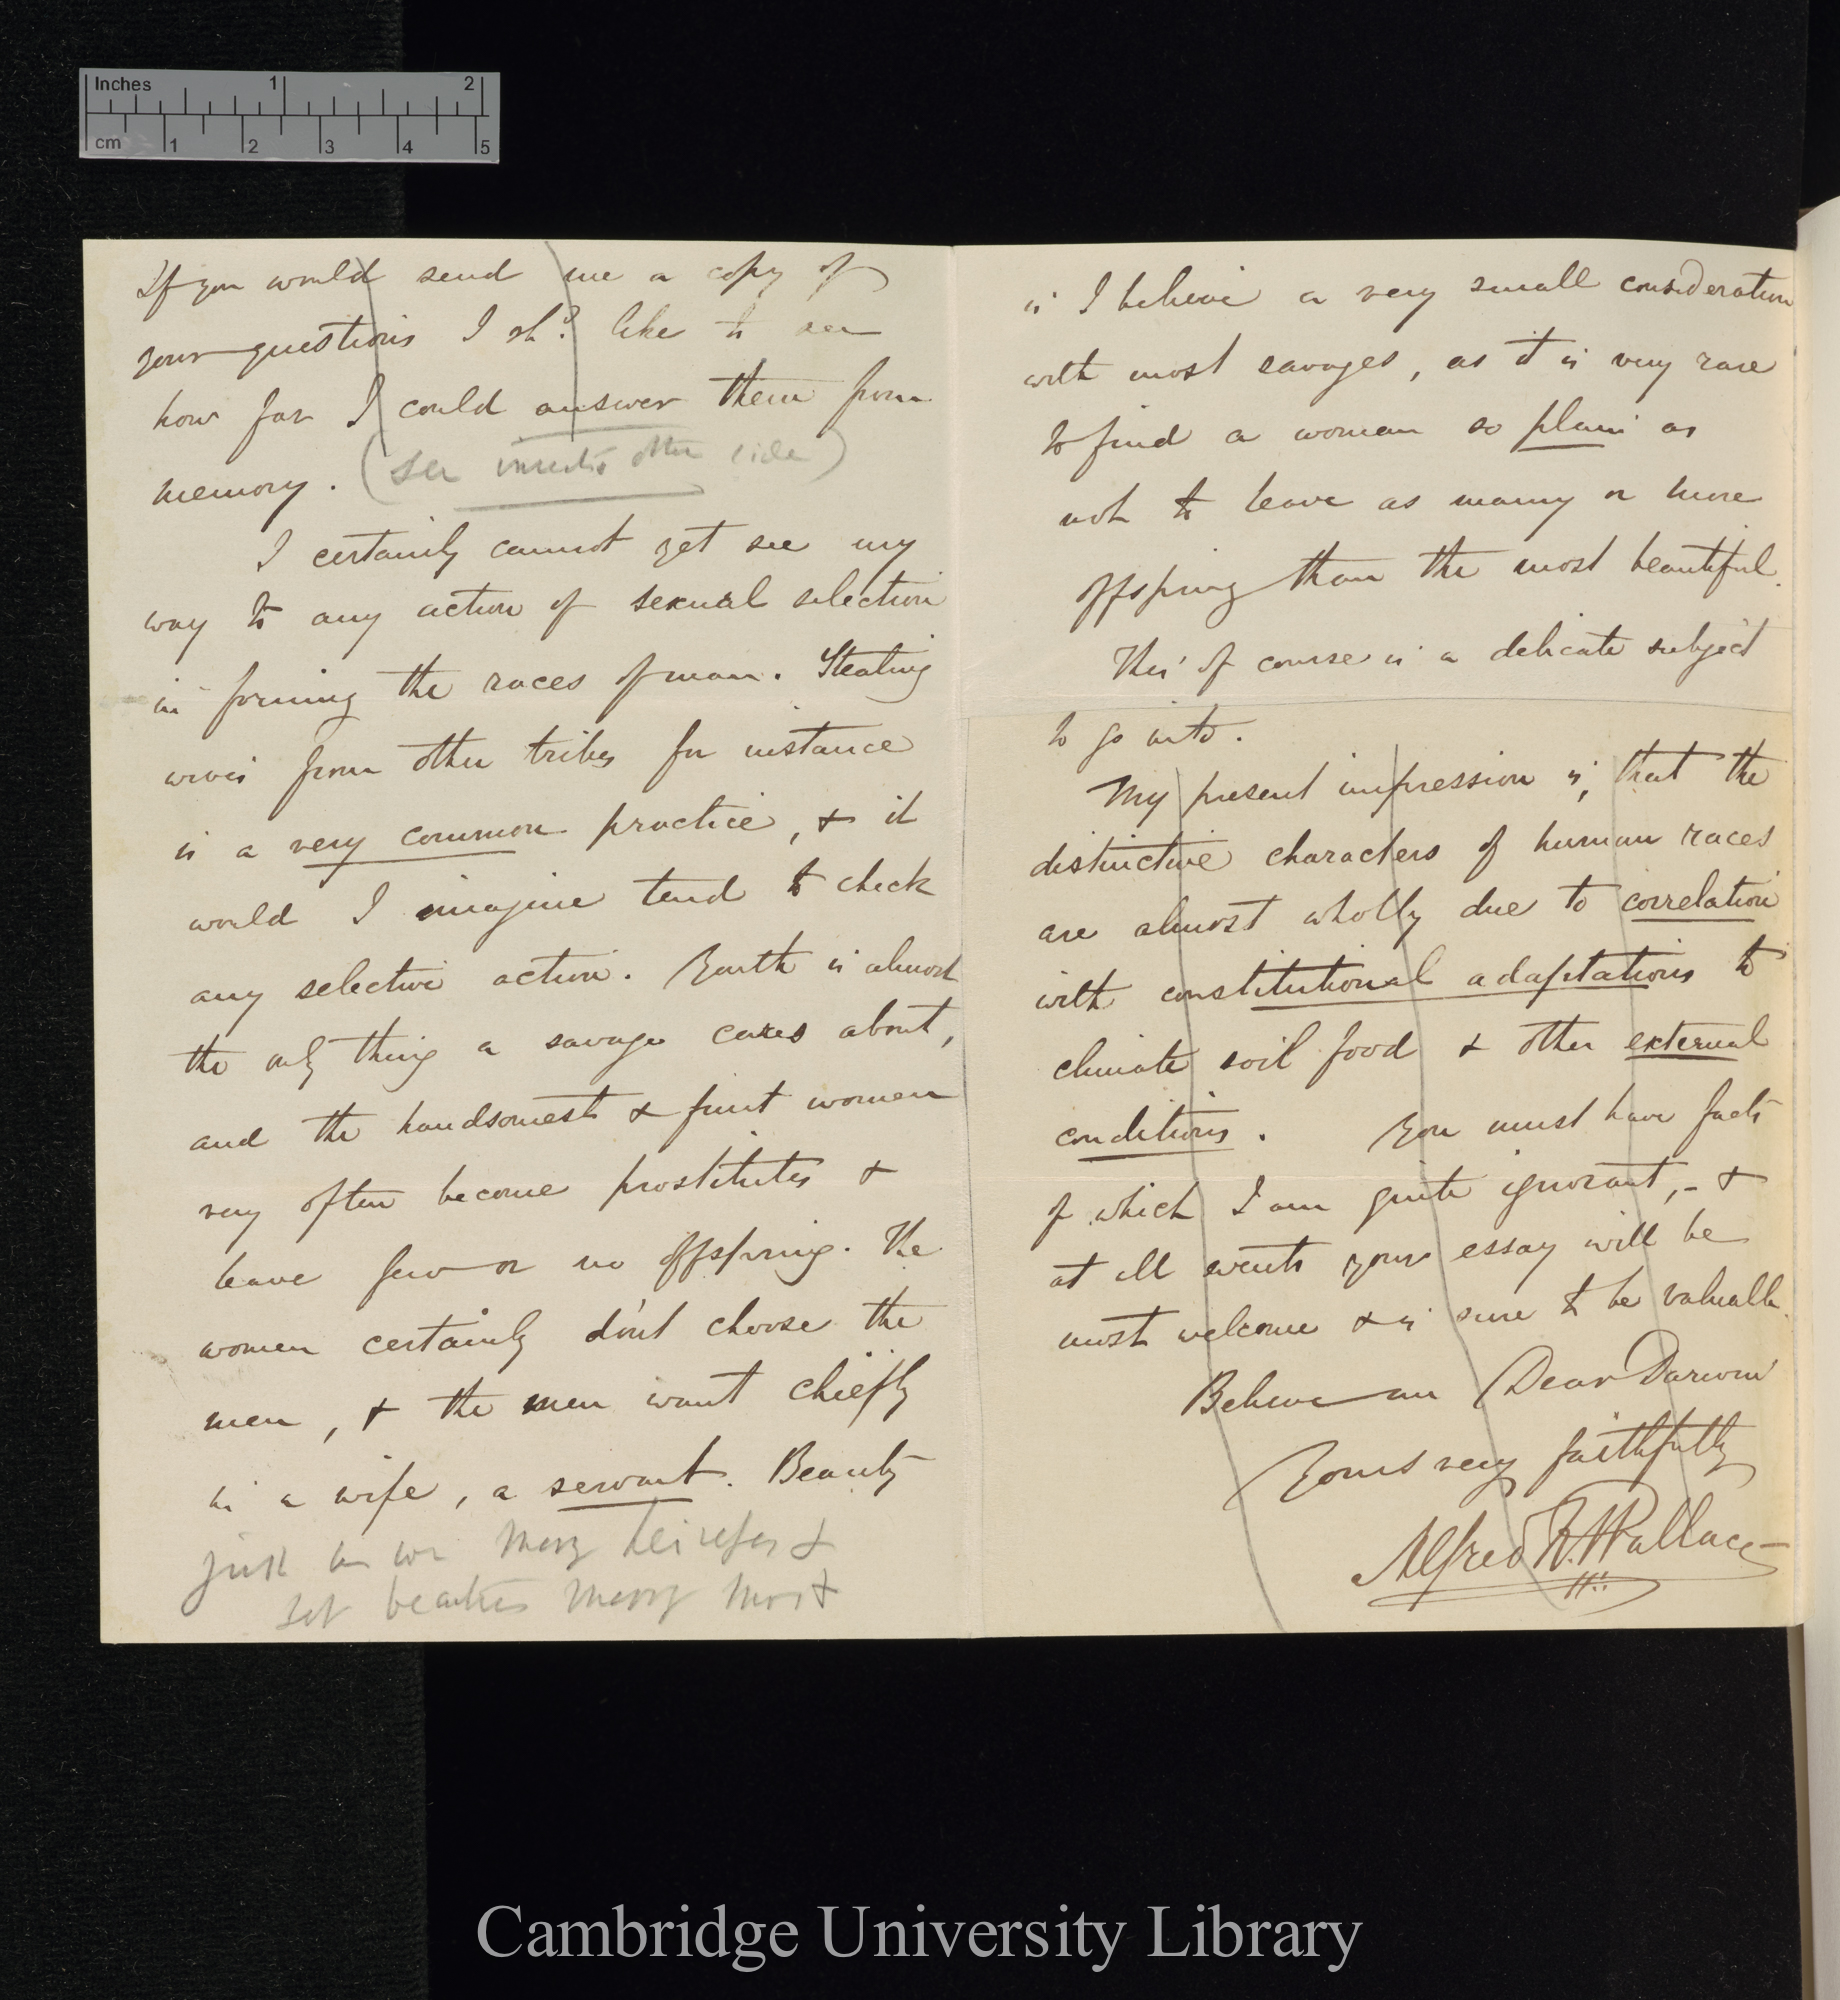 Inches 1 2
cm 1 2 3 4 5
If you would send me a copy of
your questions I shd. like to see
how far I could answer them from
memory. (see other side)
I certainly cannot yet see my
way to any action of sexual selection
in forming the races of man. Stealing
wives from other tribes for instance
is a very common practice, & it
would I imagine tend to check
any selective action. Youth is almost
the only thing a savage cares about,
and the handsomest & finest women
very often become prostitutes &
leave few or no offspring. The
women certainly don't choose the
men, & the men want chiefly
in a wife, a servant. Beauty
just as we marry heiresses &
yet beauties marry most
is I believe a very small consideration
with most savages, as it is very rare
to find a woman so plain as
not to leave as many or more
offspring than the most beautiful.
This of course is a delicate subject
to go into.
My present impression is, that the
distinctive characters of human races
are almost wholly due to correlation
with constitutional adaptations to
climate soil food & other external
conditions. You must have facts
of which I am quite ignorant, - &
at all events your essay will be
most welcome & is sure to be valuable.
Believe me Dear Darwin
Yours very faithfully
Alfred R. Wallace
Cambridge University Library